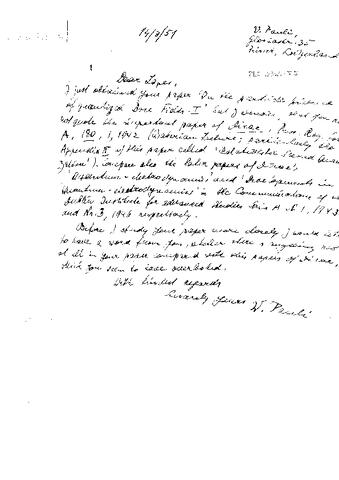 14/2/51
W. Pauli,
Zürich, Switzerland
Dear
I just obtained your paper "On the
of quantized Bose Fields-I" but I
not quote the important paper of Dirac, Proc. Roy.
A, 180, 1, 1942 (Bakerian Lecture; particularly the
Appendix of this paper called "Relativistic
compare also the later papers of Dirac's:
"Quantum-electrodynamics" and "Developments in
Quantum-electrodynamics" in the Communications of
Dublin Institute for advanced Studies Series A Nr 1, 1943
and Nr. 3, 1946 respectively.
Before I study your paper more closely I would
to have a word from you, whether there is anything new
at all in your paper compared with the papers of Dirac,
which you seem to have overlooked.
With kindest regards
Sincerely yours W. Pauli